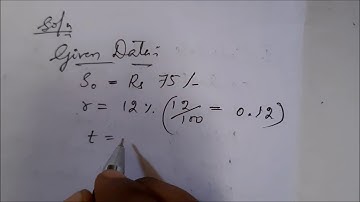 Soln
Given Data:
S₀ = Rs 75/-
r = 12% (12/100 = 0.12)
t =